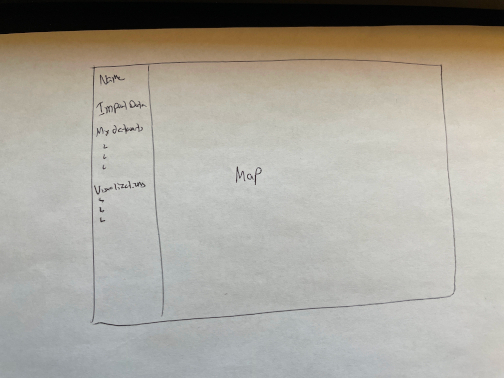 Name
Import Data
My datasets
Visualizations
Map